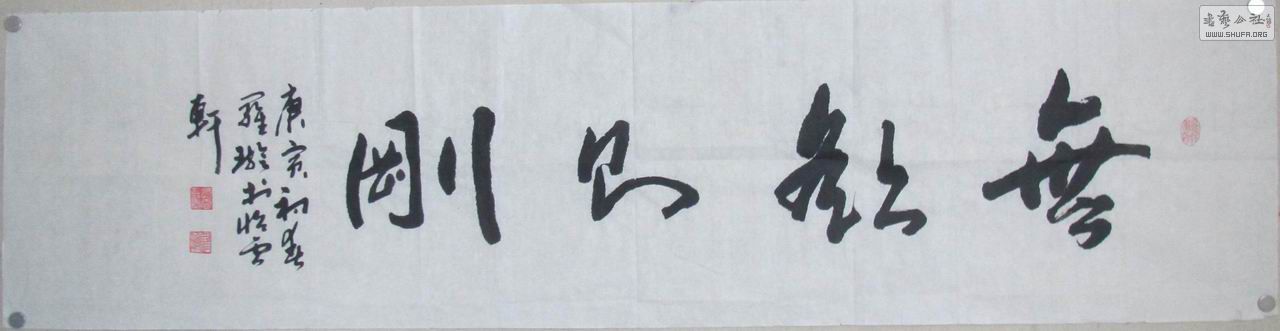 無欲則剛
庚寅初春
羅璇於怡雲
軒
书艺公社
WWW.SHUFA.ORG